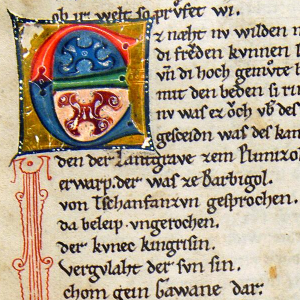 ob ir welt so prvͦfet wi.
Ez næht nv wilden m
di frͤden kvnnen l
vn̄ di hoch gemvͤte b
mit den beden si rin
nv was ez ͦch vb des
gescein was des kam
den der Lantgrave zem Plimizol
erwarp. der was ze Barbigol.
von Tschanfanzvn gesprochen.
da beleip vngerochen.
der kvnec kingrisin.
vergvlaht der svn sin.
chom gein Gawane dar: